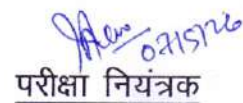 07/5/26
परीक्षा नियंत्रक